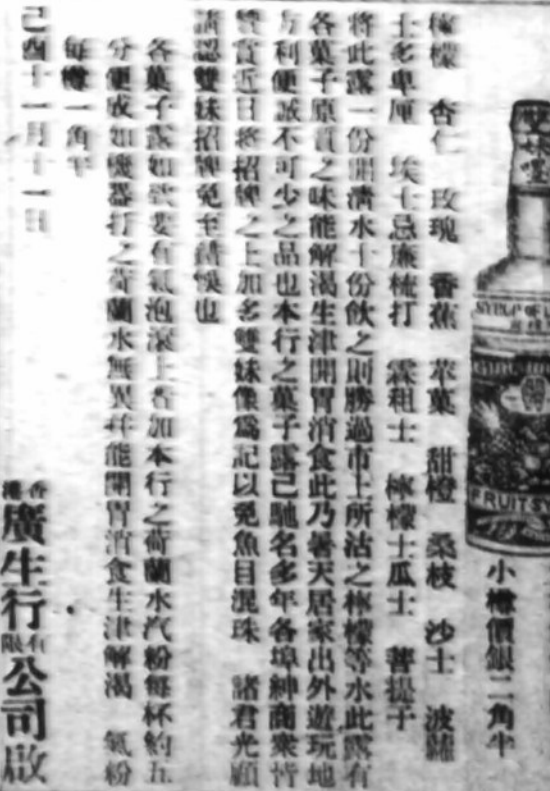 雙妹嚜
SYRUP OF
FRUIT SY
小樽價銀二角半
檸檬 杏仁 玫瑰 香蕉 苹菓 甜橙 桑枝 沙士 波蘿
士多卑厘 埃士忌廉梳打 霖租士 檸檬士瓜士 菩提子
將此露一份開清水十份飲之則勝過市上所沽之檸檬等水此露有
各菓子原質之味能解渴生津開胃消食此乃暑天居家出外遊玩地
方利便誠不可少之品也本行之菓子露已馳名多年各埠紳商衆皆
賞近日將招牌之上加多雙妹像爲記以免魚目混珠 諸君光顧
請認雙妹招牌免至錯悞也
各菓子露如欲要有氣泡滾上者加本行之荷蘭水汽粉每杯約五
分便成如機器打之荷蘭水無異幷能開胃消食生津解渴 氣粉
每樽一角半
己酉十一月十一日
香港廣生行有限公司啟